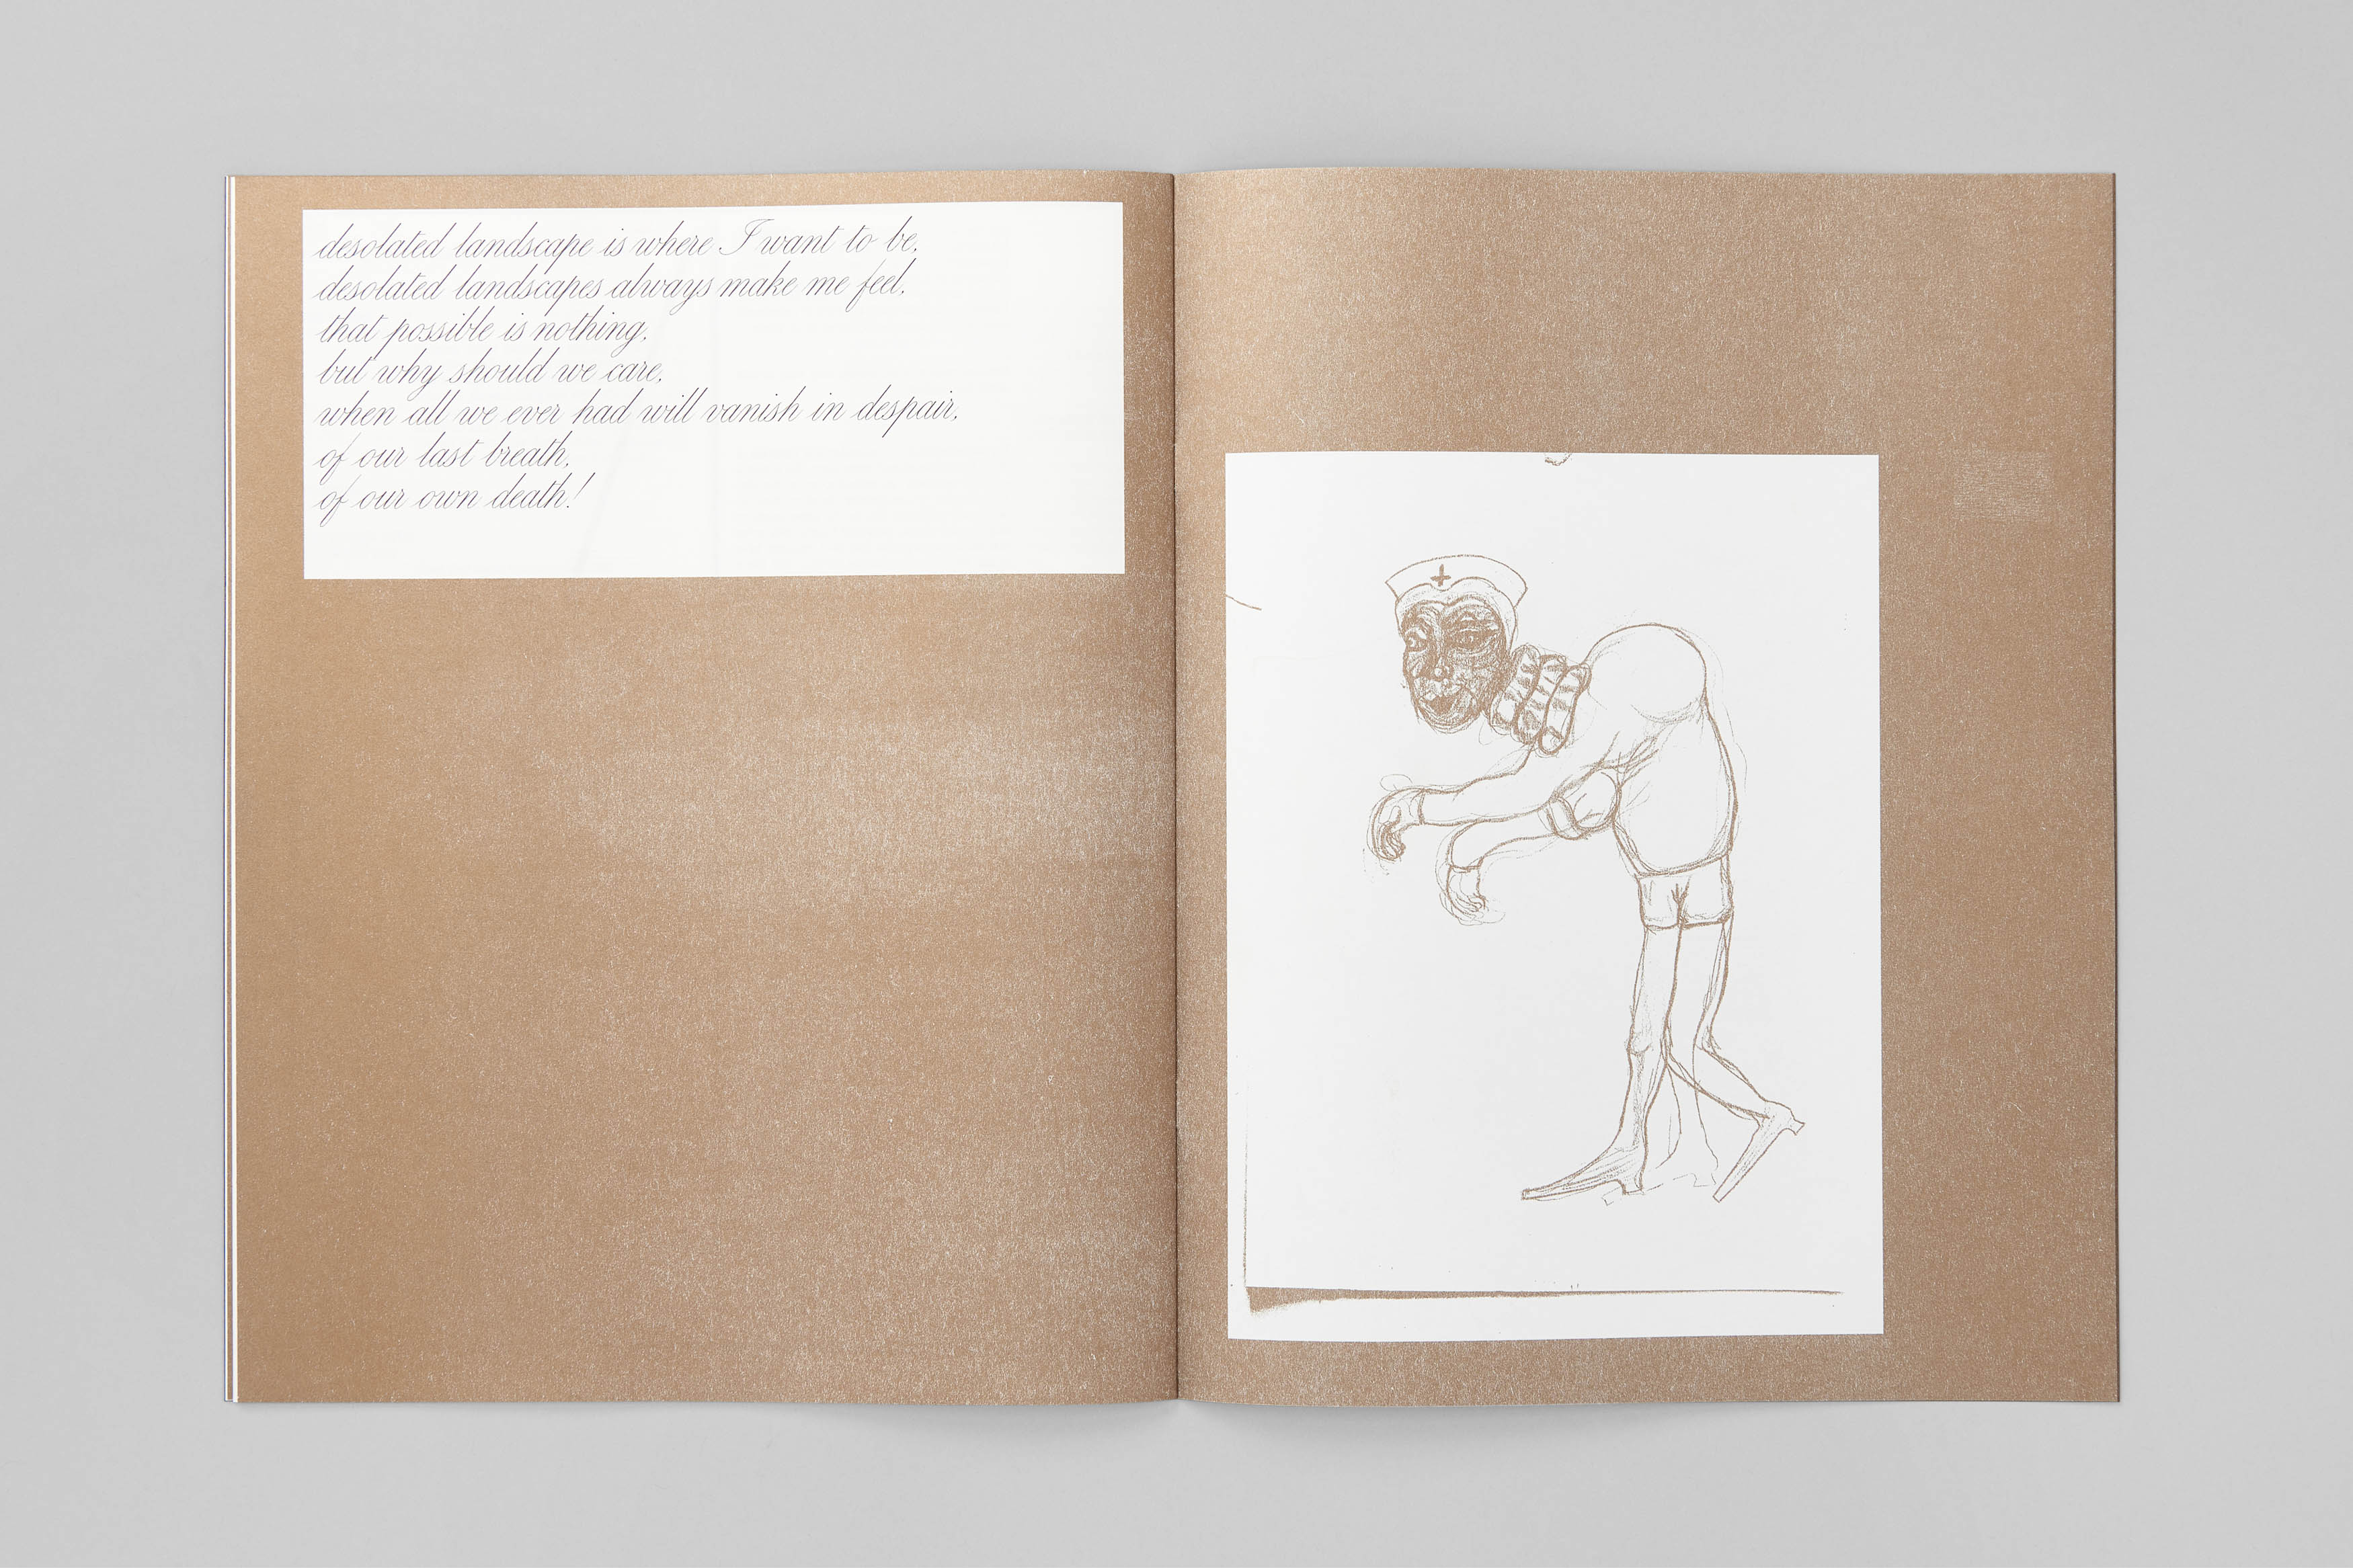 desolated landscape is where I want to be,
desolated landscapes always make me feel,
that possible is nothing,
but why should we care,
when all we ever had will vanish in despair,
of our last breath,
of our own death!